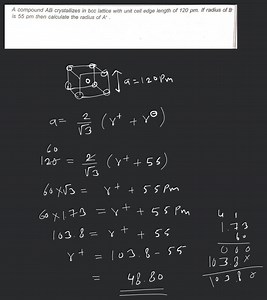 A compound AB crystallizes in bcc lattice with unit cell edge length of 120 pm. If radius of B⁻
is 55 pm then calculate the radius of A⁺.
a=120Pm
a = 2/√3 (r⁺ + r⊖)
60
120 = 2/√3 (r⁺ + 55)
60×√3 = r⁺ + 55Pm
60×1.73 = r⁺ + 55Pm
103.8 = r⁺ + 55
r⁺ = 103.8 - 55
= 48.80
4 1
1.73
60
000
103.8×
1038 0